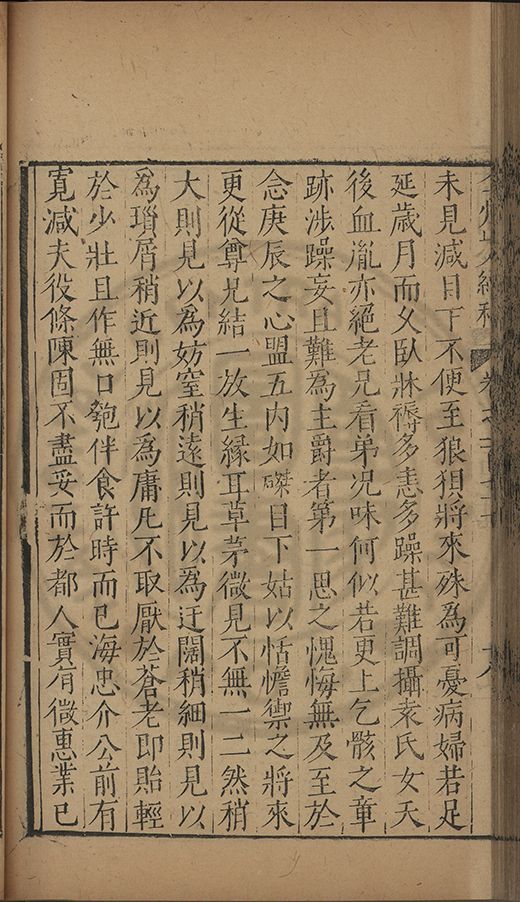 未見減目下不便至狼狽將來殊為可憂病婦若足
延歲月而久臥牀褥多恚多躁甚難調攝袁氏女天
後血胤亦絕老兄看弟況味何似若更上乞骸之章
跡涉躁妄且難為主爵者第一思之愧悔無及至於
念庚辰之心盟五內如磔目下姑以恬憺禦之將來
更從尊兄結一放生緣耳草茅微見不無一二然稍
大則見以為妨窒稍遠則見以為迂闊稍細則見以
為瑣屑稍近則見以為庸凡不取厭於蒼老即貽輕
於少壯且作無口匏伴食許時而已海忠介公前有
寬減夫役條陳固不盡妥而於都人實有微惠業已